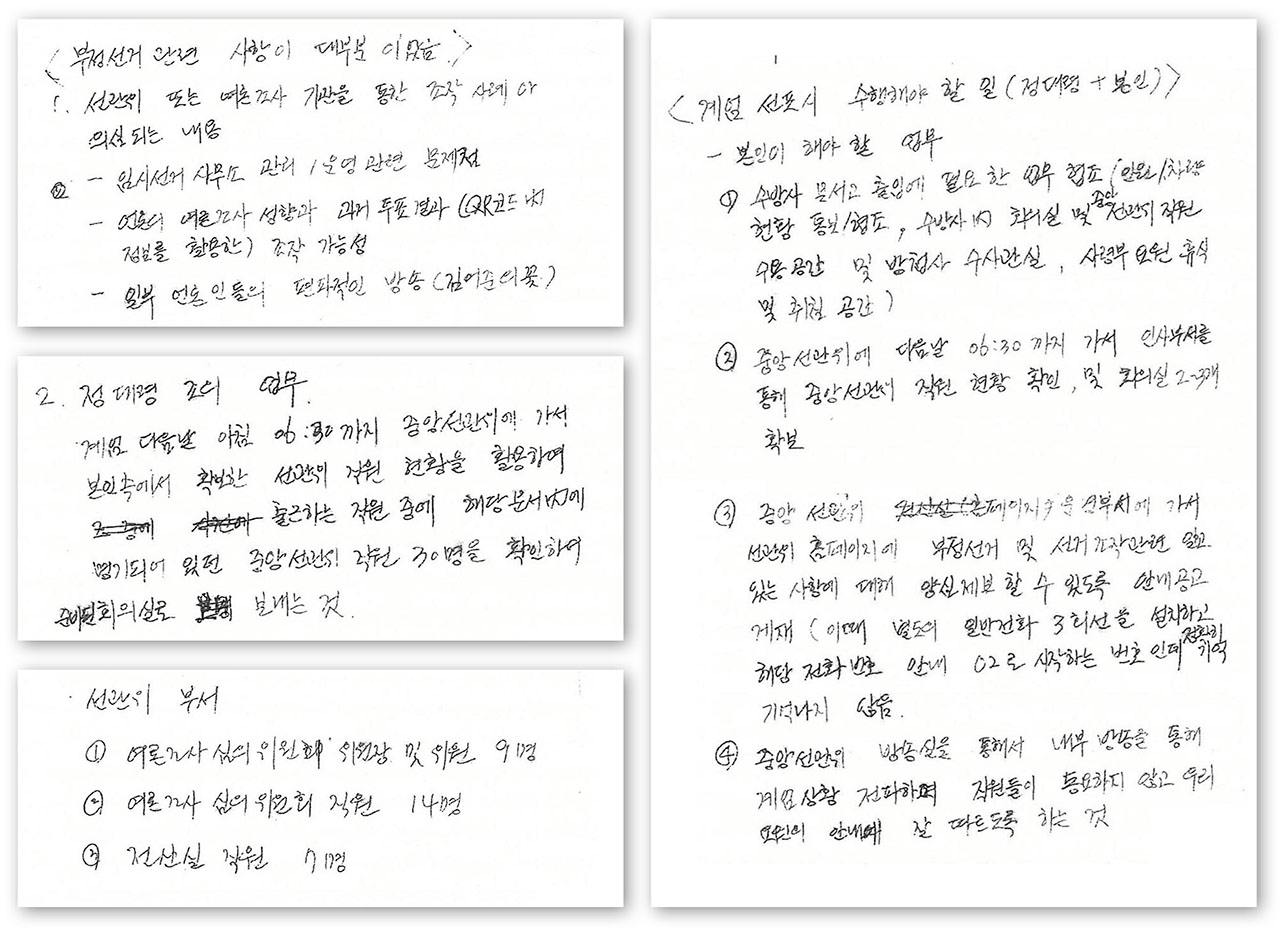 <부정선거 관련 사항이 대부분 이었음>
1. 선관위 또는 여론조사 기관을 통한 조작 사례나
의심되는 내용
- 임시선거 사무소 관리/운영관련 문제점
- 언론의 여론조사 성향과 과거 투표결과(QR코드 内
정보를 활용한) 조작 가능성
- 일부 언론인들의 편파적인 방송(김어준의 꽃)
2. 정대령 조의 업무.
계엄 다음날 아침 06:30까지 중앙선관위에 가서
본인속에서 확보한 선관위 직원 현황을 활용하여
출근하는 직원 중에 해당문서 内에
명기되어 있던 중앙선관위 직원 30명을 확인하여
준비된 회의실로 보내는 것.
· 선관위 부서
① 여론조사 심의위원회 위원장 및 위원 9명
② 여론조사 심의위원회 직원 14명
③ 전산실 직원 7명
<계엄 선포시 수행해야 할 일(정대령 + 본인)>
- 본인이 해야 할 업무
① 수방사 문서고 출입에 필요한 업무 협조(인원/차량
현황 통보/협조, 수방사 内 회의실 및 중앙선관위 직원
수용공간 및 방첩사 수사관실, 사령부 요원 휴식
및 취침 공간)
② 중앙선관위에 다음날 06:30까지 가서 인사부서를
통해 중앙선관위 직원 현황 확인, 및 회의실 2-3개
확보
③ 중앙 선관위 부서에 가서
선관위 홈페이지에 부정선거 및 선거조작관련 알고
있는 사항에 대해 양심제보 할 수 있도록 안내공고
게재 (이때 별도의 일반전화 3회선을 설치하고
해당 전화번호 안내 02로 시작하는 번호인데 정확히 기억
기억나지 않음.
④ 중앙선관위 방송실을 통해서 내부 방송을 통해
계엄상황 전파하며 직원들이 동요하지 않고 우리
요원의 안내에 잘 따르도록 하는 것